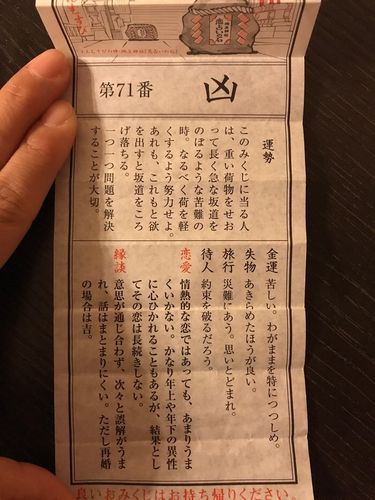 第71番
凶
運勢
このみくじに当る人
は、重い荷物をせお
って長く急な坂道を
のぼるような苦難の
時。なるべく荷を軽
くするよう努力せよ。
あれも、これもと欲
を出すと坂道をころ
げ落ちる。
一つ一つ問題を解決
することが大切。
金運 苦しい。わがままを特につつしめ。
失物 あきらめたほうが良い。
旅行 災難にあう。思いとどまれ。
待人 約束を破るだろう。
恋愛 情熱的な恋ではあっても、あまりうま
くいかない。かなり年上や年下の異性
に心ひかれることもあるが、結果とし
てその恋は長続きしない。
縁談 意思が通じ合わず、次々と誤解がうま
れ、話はまとまりにくい。ただし再婚
の場合は吉。
良いおみくじはお持ち帰りください